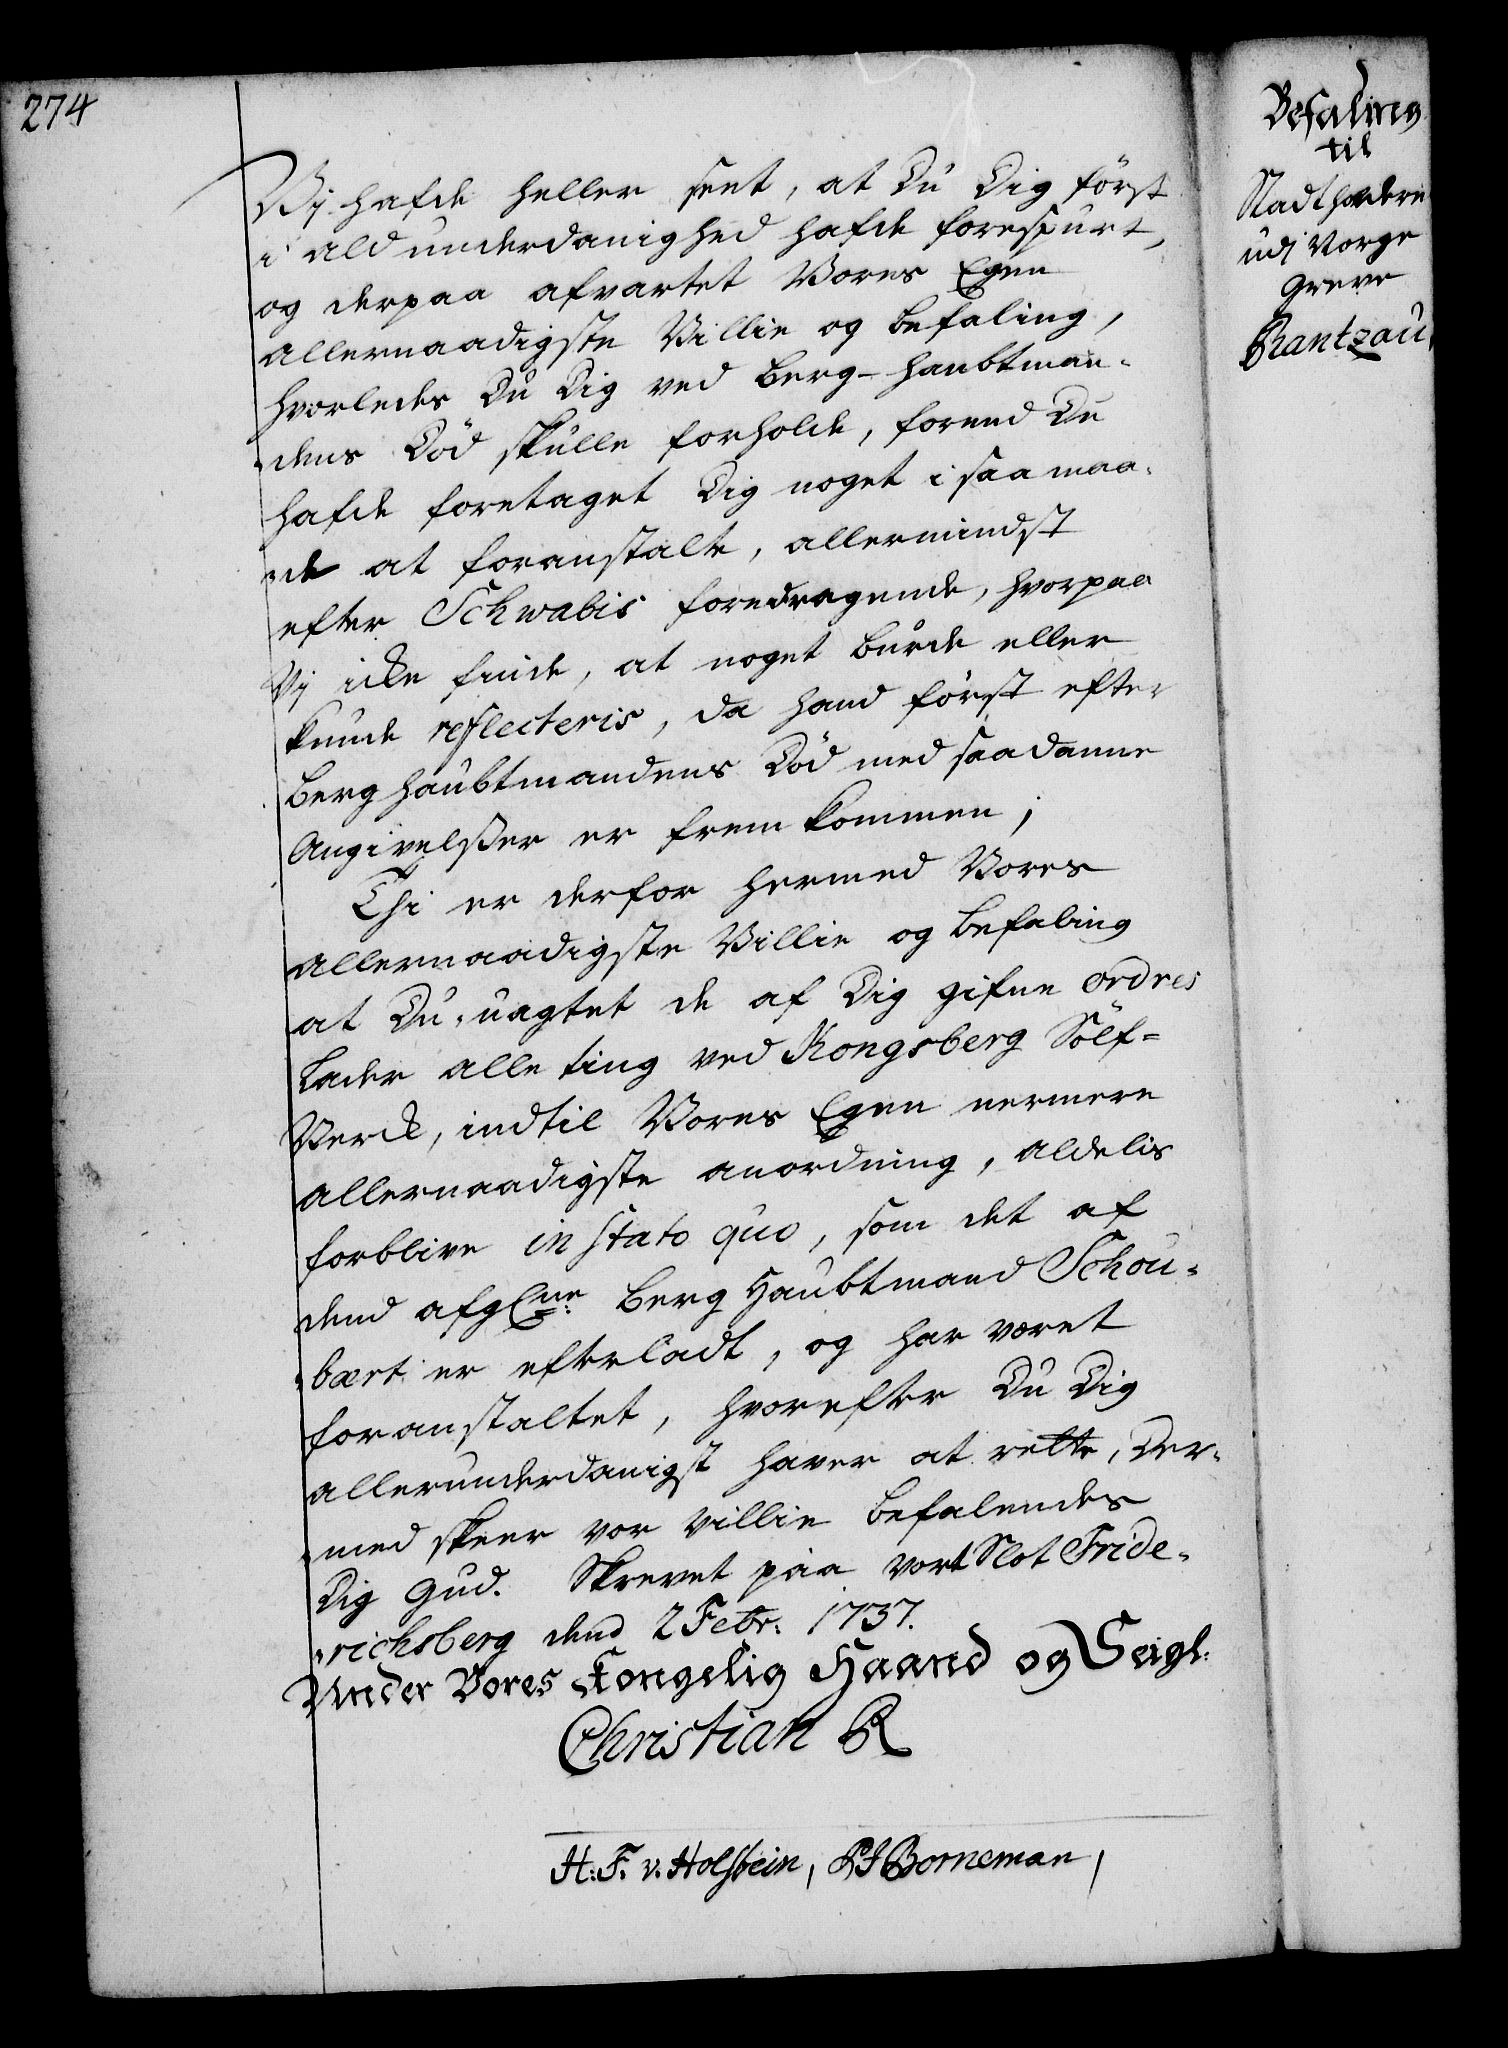 274
Vj hafde heller seet, at Du Dig först
i ald underdanighed hafde forespurt,
og derpaa afvartet Vores Egen
allernaadigste Villie og befaling,
hvorledes Du Dig ved Berg-haubtman-
dens Död skulle forholde, forend Du
hafde foretaget Dig noget i saa maa-
de at foranstalte, allermindst
efter Schwabis foredragende, hvorpaa
Vj icke finde, at noget burde eller
kunde reflecteris, da hand först efter
Berghaubtmandens Död med saadanne
Angivelßer er frem kommen;
Thi er derfor hermed Vores
allernaadigste Villie og befaling
at Du, uagtet de af Dig gifne ordres
lader alle ting ved Kongsberg Sölf-
Verck, indtil Vores Egen nermere
allernaadigste anordning, aldelis
forblive in stato quo, som det af
dend afgl. Berg Haubtmand Schou-
bært er efterladt, og har været
foranstaltet, hvorefter Du Dig
allerunderdanigst haver at rette, Der-
med skeer vor villie befalendes
Dig Gud. Skrevet paa vort Slot Fride-
richsberg dend 2 Febr: 1737.
Under Vores Kongelig Haand og Seigl.
Christian R
H: F. v. Holstein, Borneman,
Befaling
til
Stadtholderen
udj Norge
Greve
Rantzau,